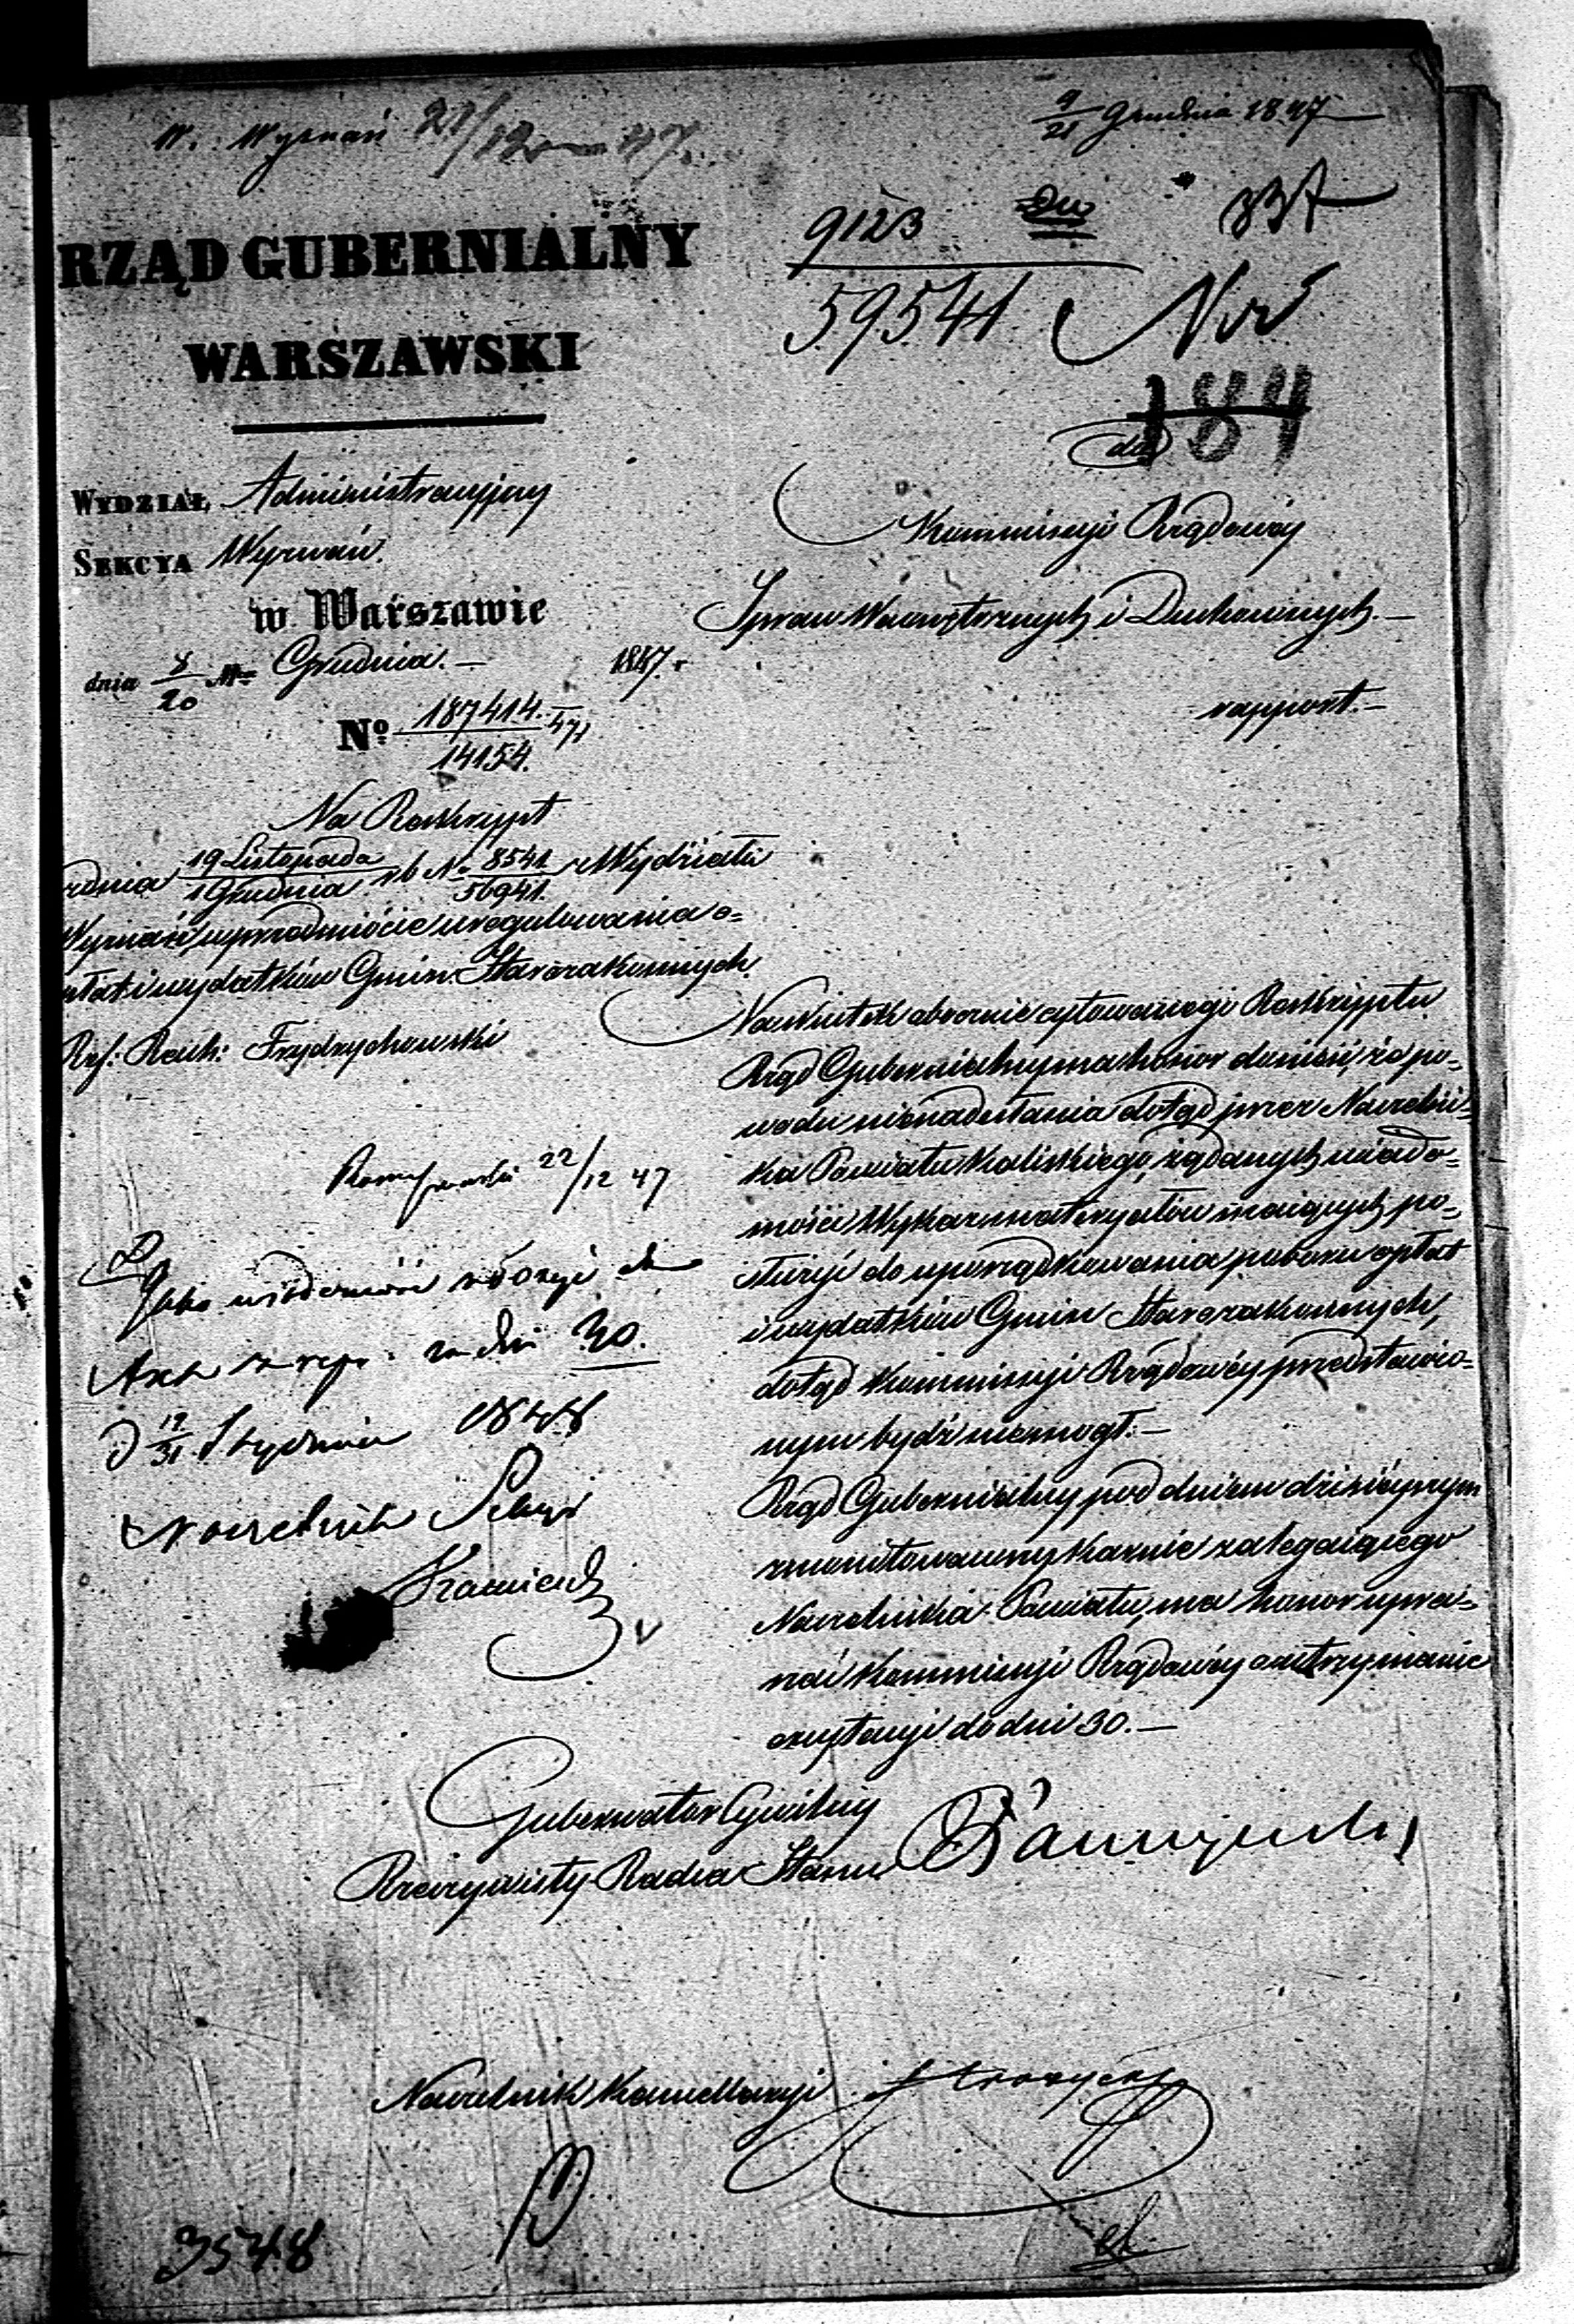 W. Wyznań 21/12 47.
9/21 Grudnia 1847
9123
59541
Nr
184
RZĄD GUBERNIALNY
WARSZAWSKI
WYDZIAŁ Administracyjny
SEKCYA Wyznań.
w Warszawie
dnia 8/20 Mca Grudnia.— 1847.r
No 187414./14154. 47
do
Kommissyi Rządowéy
Spraw Wewnętrznych i Duchownych.—
rapport.—
Na Reskrypt
zdnia 19 Listopada/1 Grudnia r b No 8541/56941. z Wydziału
Wyznań, wprzedmiócie uregulowania o=
płat i wydatków Gmin Starozakonnych.
Ref: Rach: Frydrychowski
Naskutek obocznie cytowanego Reskryptu
Rząd Gubernialny ma honor donieść, iż po=
wodu nienadesłania dotąd przez Naczelni=
ka Powiatu Kaliskiego, żądanych wiado=
mości Wykaz materyałów maiących po=
służyć do uporządkowania poboru opłat
i wydatków Gmin Starozakonnych,
dotąd Kommissyi Rządowéy przedstawio=
nym bydź niemógł.—
Rząd Gubernialny pod dniem dzisiéyszym
zmonitowawszy karnie zalegaiącego
Naczelnika Powiatu, ma honor upra=
szać Kommissyi Rządowéy o utrzymanie
exystencyi do dni 30.—
22/12 47
Jako wiadomość złożyć do
Akt z rep. za dni 30.
D 19/31 Stycznia 1848
Naczelnik Sekcyi
Gubernator Cywilny
Rzeczywisty Radca Stanu
Naczelnik Kancellaryi
3548